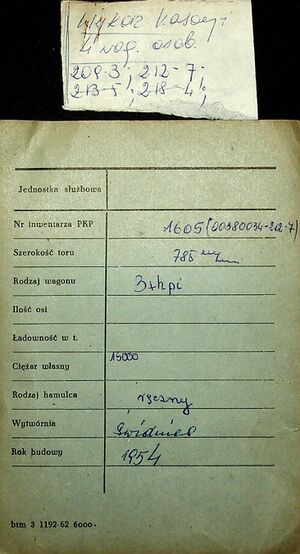 Wykaz kasacji
4 wag. osob.
209-3; 212-7;
213-5; 218-4;
Jednostka służbowa
Nr inwentarza PKP 1605 (00380034-212-7)
Szerokość toru 785 mm
Rodzaj wagonu 3xhpi
Ilość osi
Ładowność w t.
Ciężar własny 15000
Rodzaj hamulca ręczny
Wytwórnia Świdnica
Rok budowy 1954
btm 3 1192-62 6000-